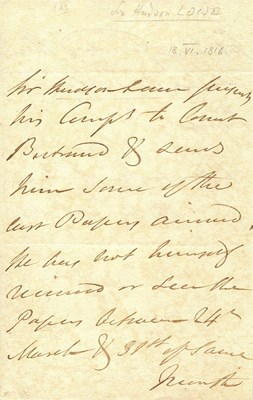 Sir Hudson LOWE
18. VI. 1816
Sir Hudson Lowe presents
his Compts to Count
Bertrand & sends
him some of the
last Papers arrived,
he has not himself
received or seen the
Papers between 24th
March & 31st of same
Month